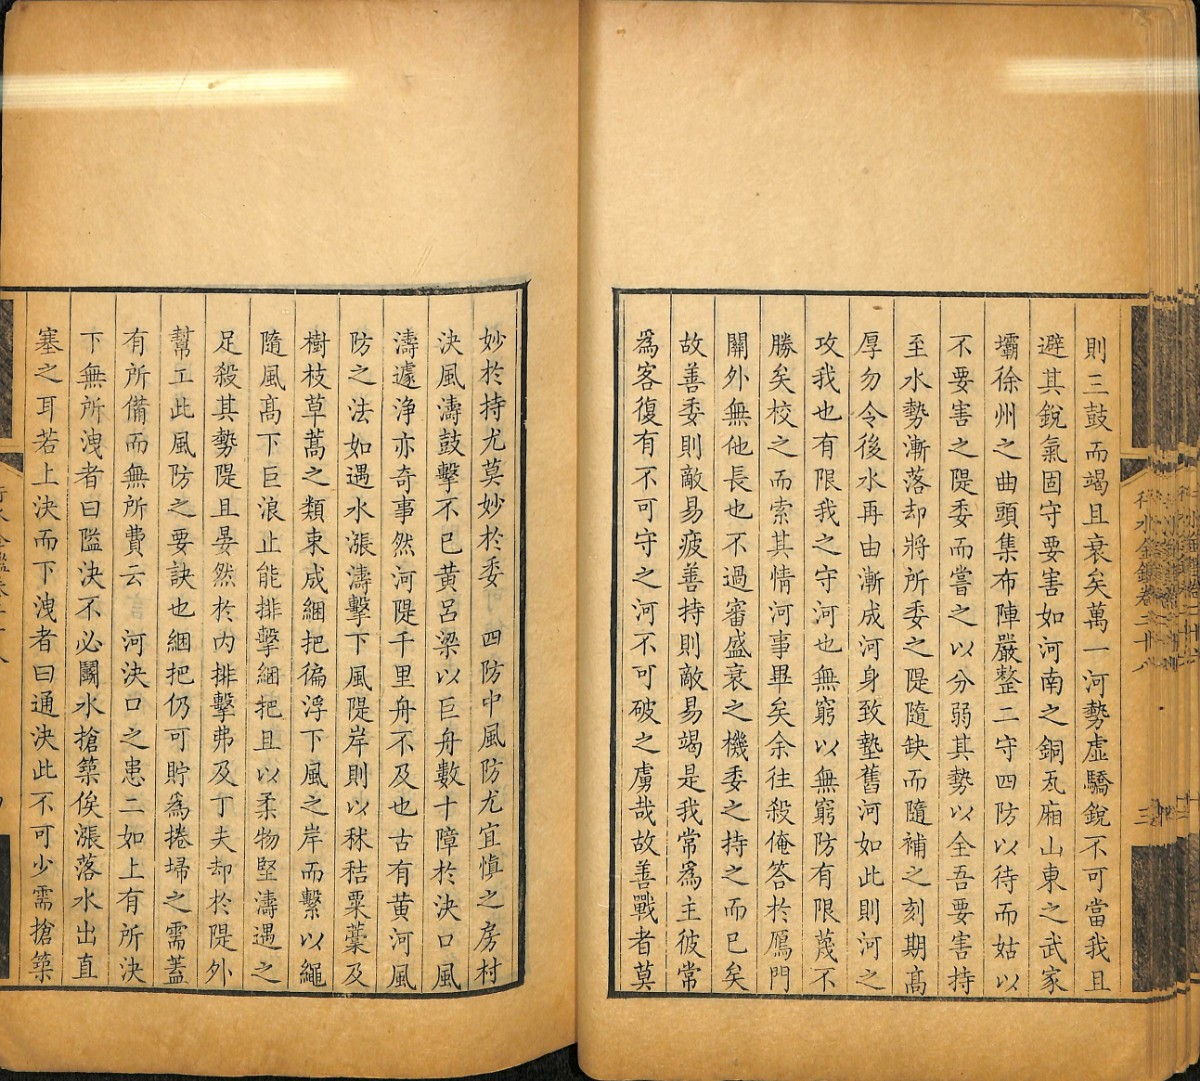 則三鼓而竭且衰矣萬一河勢虛驕銳不可當我且
避其銳氣固守要害如河南之銅瓦廂山東之武家
壩徐州之曲頭集布陣嚴整二守四防以待而姑以
不要害之隄委而嘗之以分弱其勢以全吾要害持
至水勢漸落却將所委之隄隨缺而隨補之刻期髙
厚勿令後水再由漸成河身致墊舊河如此則河之
攻我也有限我之守河也無窮以無窮防有限蔑不
勝矣校之而索其情河事畢矣余往殺俺答於鴈門
關外無他長也不過審盛衰之機委之持之而已矣
故善委則敵易疲善持則敵易竭是我常爲主彼常
爲客復有不可守之河不可破之虜哉故善戰者莫
妙於持尤莫妙於委 四防中風防尤宜慎之房村
決風濤鼓擊不已黄呂梁以巨舟數十障於決口風
濤遽浄亦奇事然河隄千里舟不及也古有黄河風
防之法如遇水漲濤擊下風隄岸則以秫秸粟藁及
樹枝草蒿之類束成綑把徧浮下風之岸而繫以繩
隨風髙下巨浪止能排擊綑把且以柔物堅濤遇之
足殺其勢隄且晏然於内排擊弗及丁夫却於隄外
幫工此風防之要訣也綑把仍可貯爲捲埽之需蓋
有所備而無所費云 河決口之患二如上有所決
下無所洩者曰隘決不必鬭水搶築俟漲落水出直
塞之耳若上決而下洩者曰通決此不可少需搶築
行水金鑑卷三十八
三